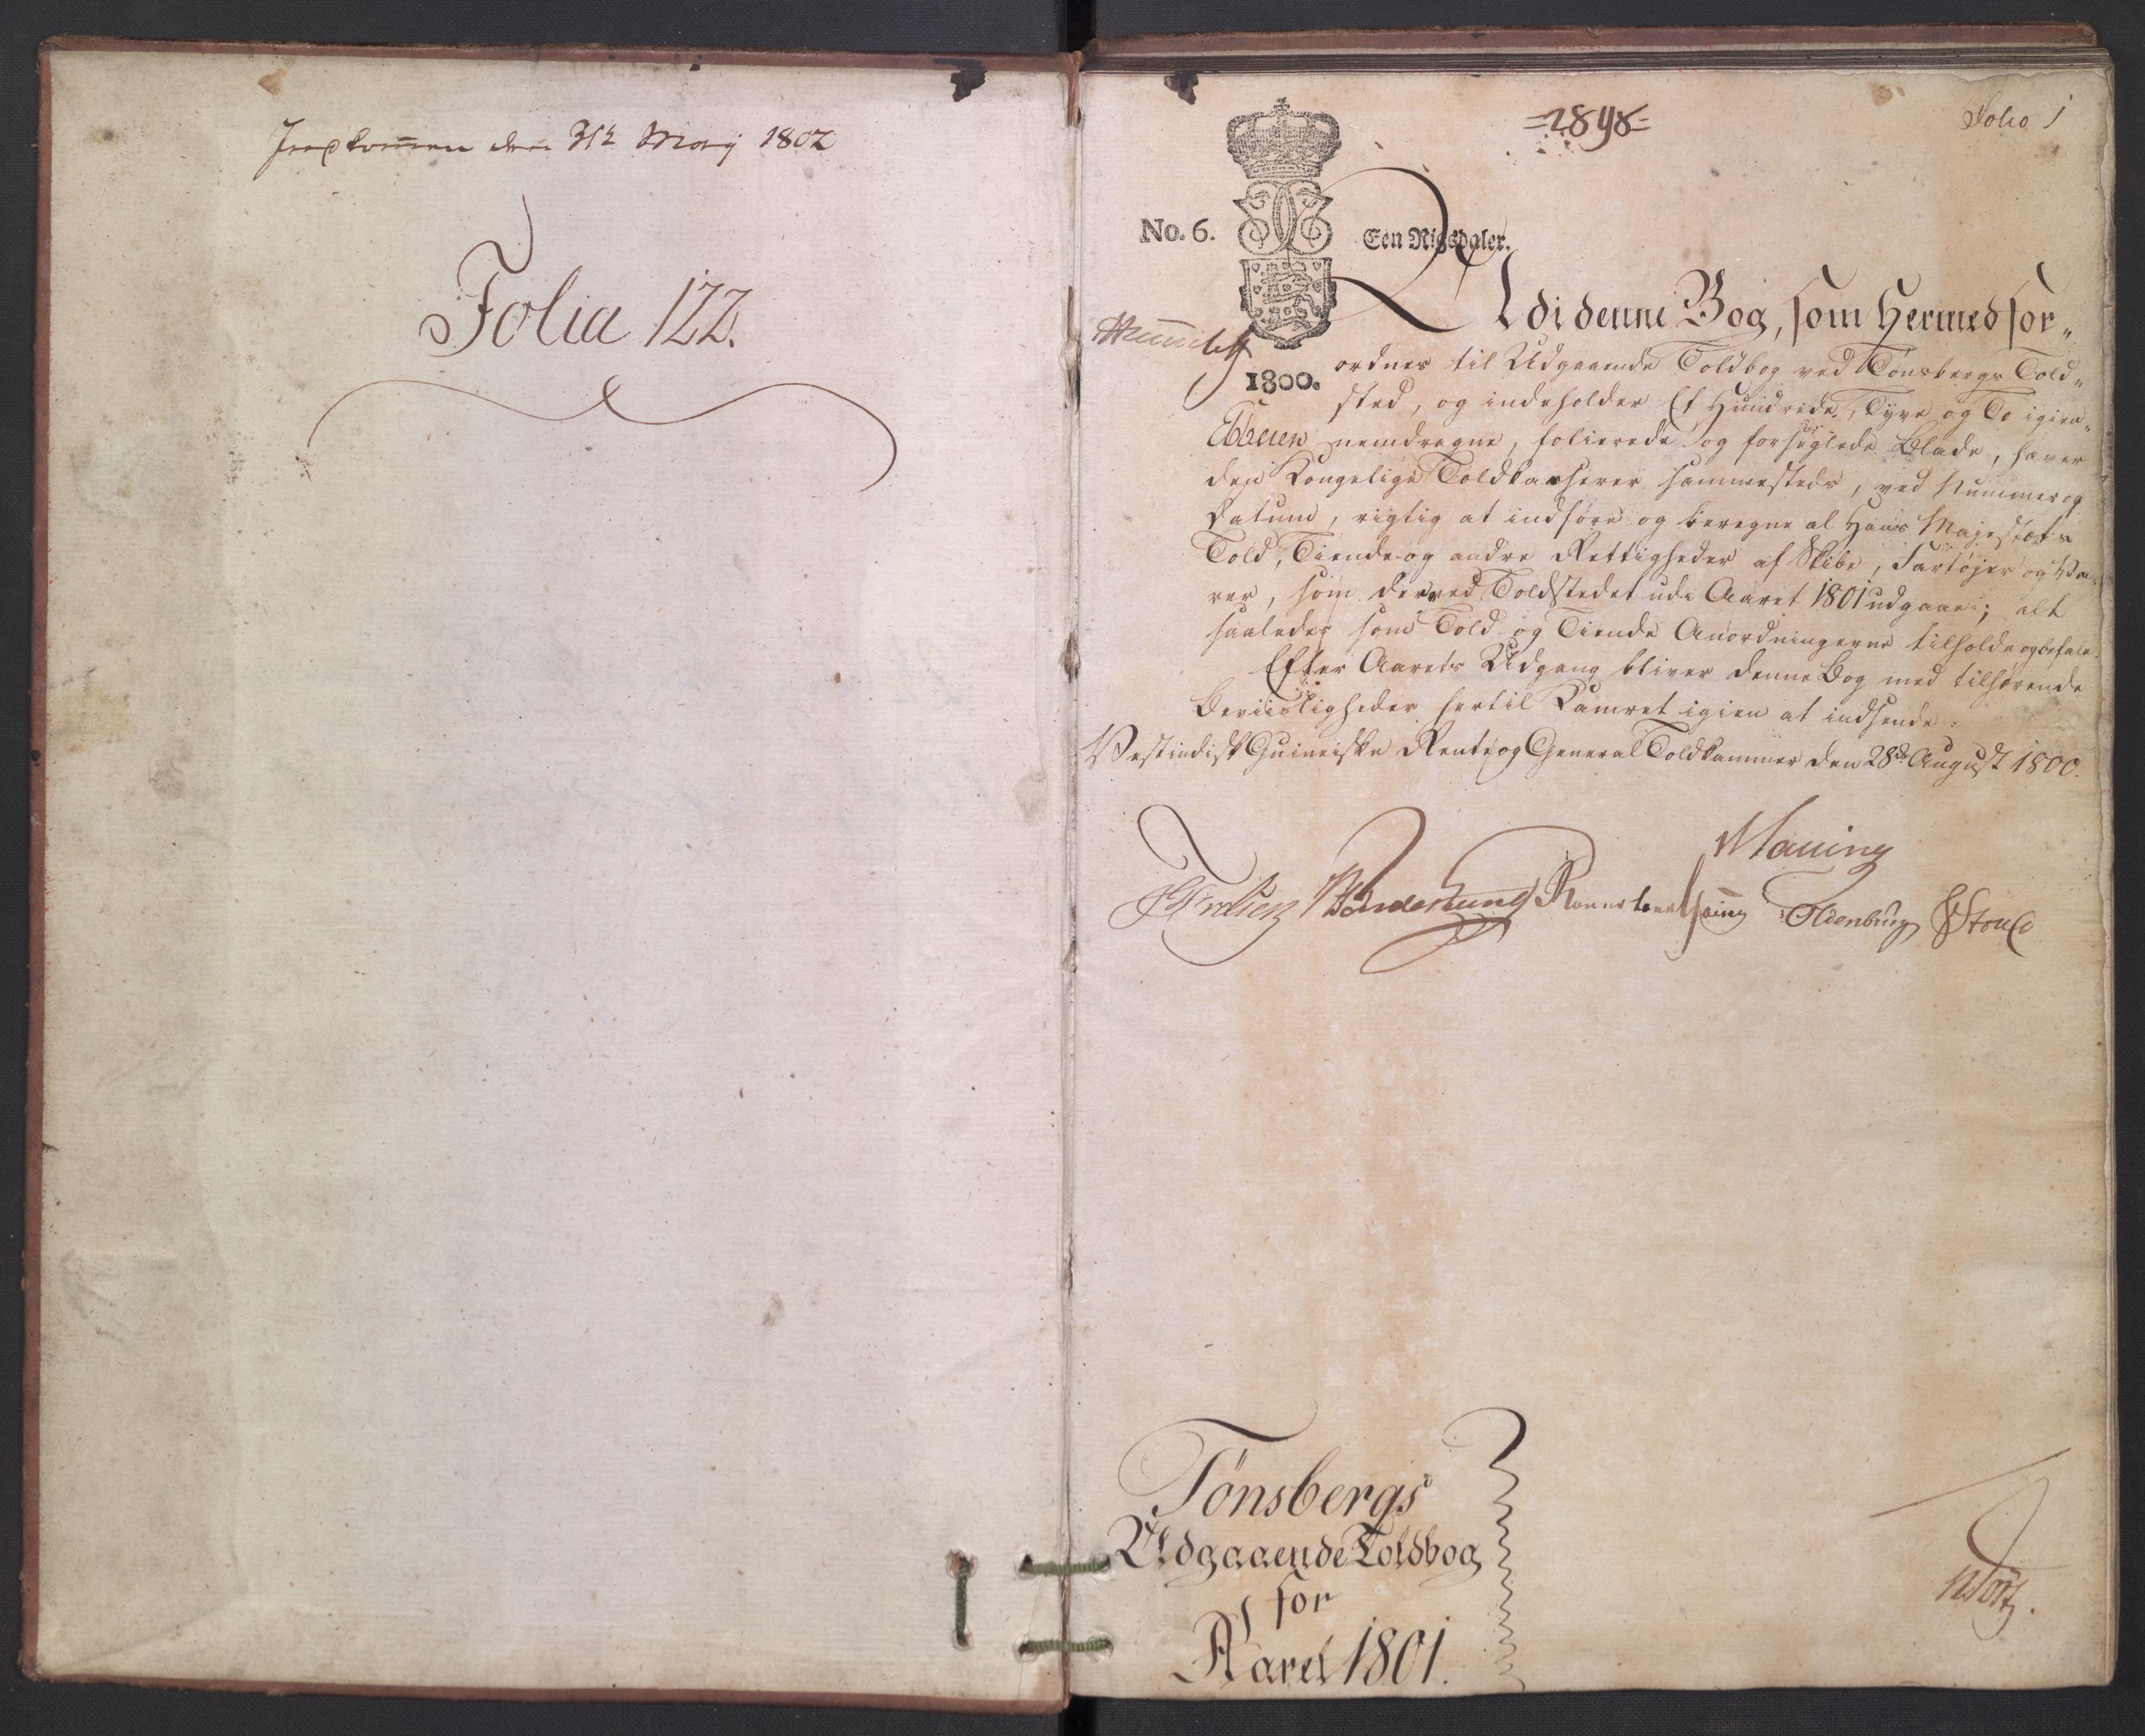 Indkom̅en den 31te Maij 1802
Folia 122.
=2848=
Folio 1
No. 6.
Een Rigsdaler.
1800.
Udi denne Bog, som Hermed for„
ordnes til Udgaaende Toldbog ved Tønsbergs Told„
sted, og indeholder Et Hundrede, Tyve og To igien„
nemdragne, folierede og forseglede Blade, haver
den Kongelige Toldkasserer sammesteds, ved Nummer og
Datum, rigtig at indføre og beregne al Hans Majestæts
Told, Tiende og andre Rettigheder af Skibe, Fartøjer og Va„
rer, som derved Toldstedet udi Aaret 1801 udgaae; alt
saaledes som Told og Tiende Anordningerne tilholde og befale.
Efter Aarets Udgang bliver denne Bog med tilhørende
Beviisligheder hertil Kamret igien at indsende.
Vestindisk Guineiske Rente og General Toldkammer den 28de August 1800.
Oldenburg
Tønsbergs
Udgaaende Toldbog
for
Aaret 1801.